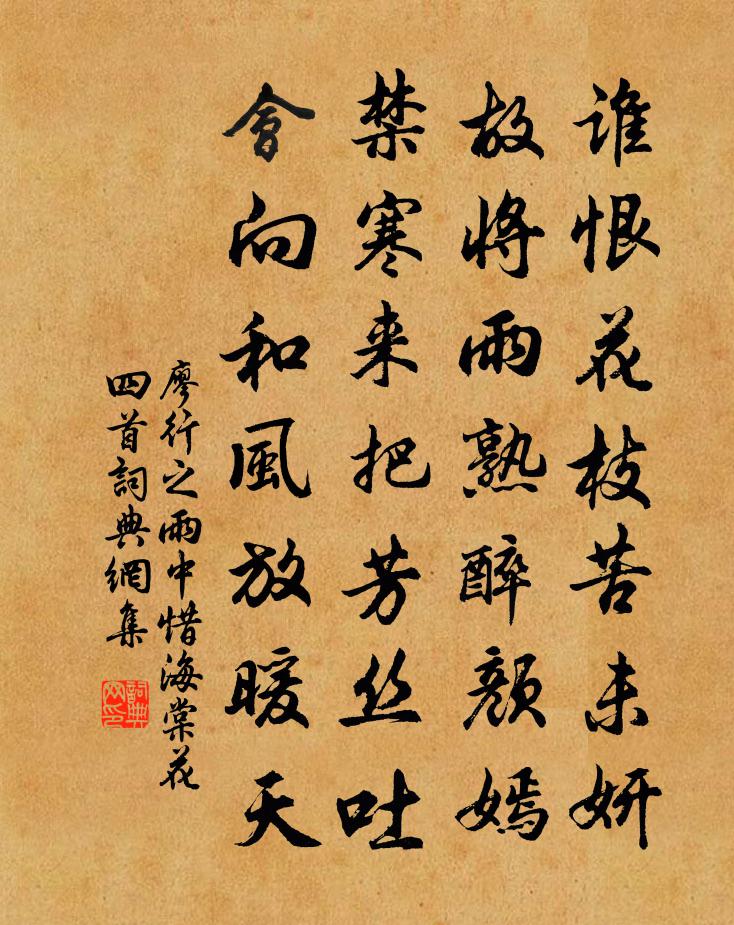 誰恨花枝苦未妍
故將雨熟醉顏嫣
禁寒来把芳丝吐
會向和風放暖天
廖行之雨中惜海棠花
四首詞典網集
詞典网印